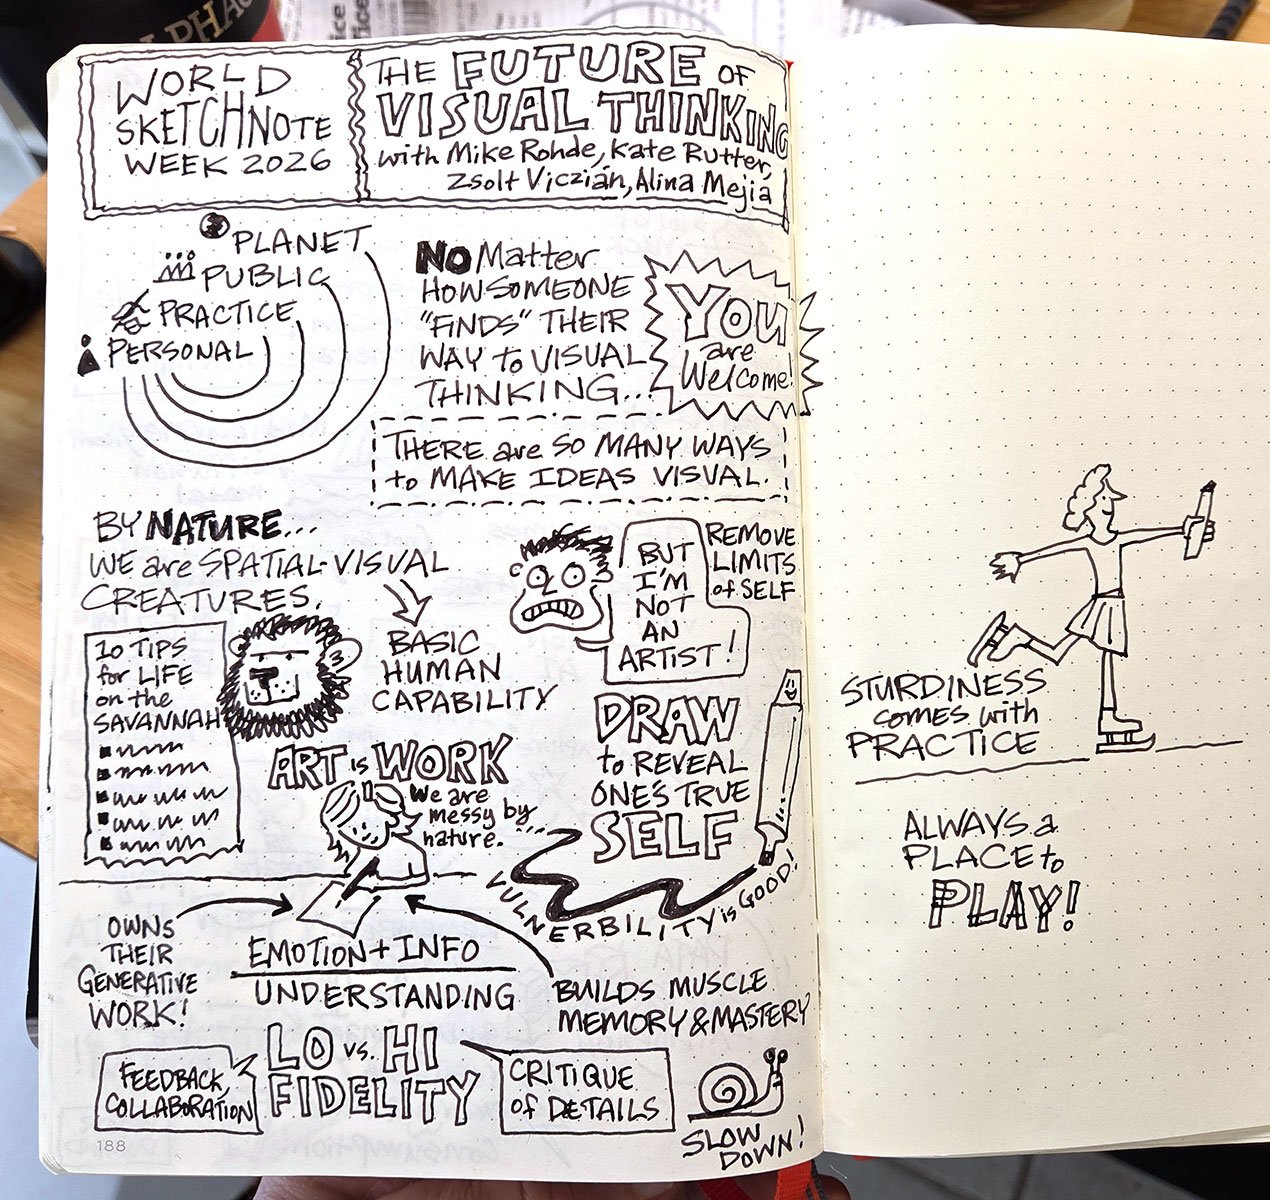 ALPHA
WORLD
SKETCHNOTE
WEEK 2026
THE FUTURE OF
VISUAL THINKING
with Mike Rohde, Kate Rutter,
Zsolt Viczián, Alina Mejia
PLANET
PUBLIC
PRACTICE
PERSONAL
NO Matter
HOW SOMEONE
"FINDS" THEIR
WAY to VISUAL
THINKING...
YOU
are
Welcome!
THERE are SO MANY WAYS
to MAKE IDEAS VISUAL.
BY NATURE...
WE are SPATIAL-VISUAL
CREATURES.
BASIC
HUMAN
CAPABILITY
10 TIPS
for LIFE
on the
SAVANNAH
BUT
I'M
NOT
AN
ARTIST!
REMOVE
LIMITS
of SELF
ART is WORK
We are
messy by
nature.
DRAW
to REVEAL
ONE'S TRUE
SELF
VULNERBILITY is GOOD!
OWNS
THEIR
GENERATIVE
WORK!
EMOTION + INFO
UNDERSTANDING
BUILDS MUSCLE
MEMORY & MASTERY
LO vs. HI
FIDELITY
FEEDBACK,
COLLABORATION
CRITIQUE
of DETAILS
SLOW
DOWN!
188
STURDINESS
comes with
PRACTICE
ALWAYS a
PLACE to
PLAY!